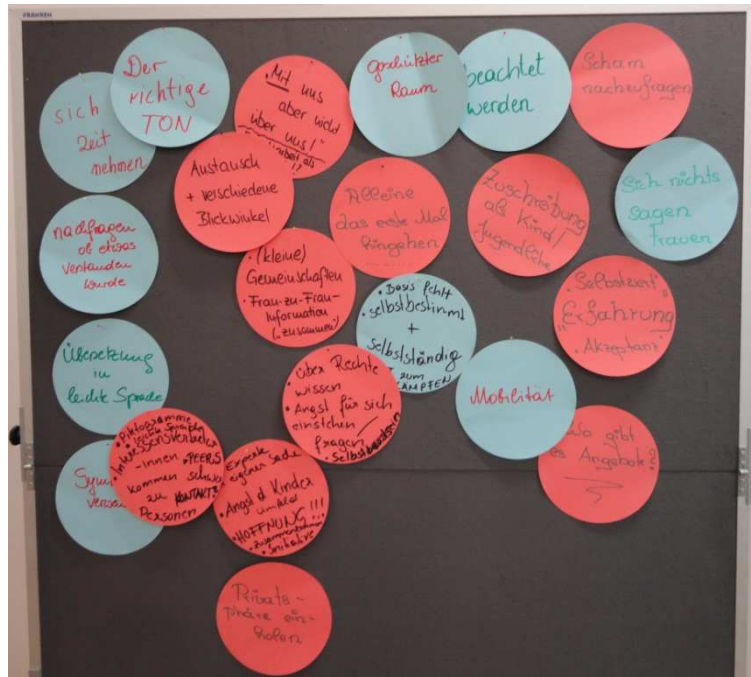 FRANKEN
Der
richtige
TON
sich
Zeit
nehmen
"Mit uns
aber nicht
über uns!"
geschützter
Raum
beachtet
werden
Scham
nachzufragen
Austausch
+ verschiedene
Blickwinkel
Alleine
das erste Mal
hingehen
Zuschreibung
als Kind/
Jugendliche
Sich nichts
sagen
trauen
nachfragen
ob etwas
verstanden
wurde
• (kleine)
Gemeinschaften
• Frau-zu-Frau-
Information
(zusammen)
• Basis fehlt
• selbstbestimmt
+
selbstständig
zum
KÄMPFEN
• Selbstwert
"Erfahrung
• Akzeptanz"
Übersetzung
in
leichte Sprache
• über Rechte
wissen
• Angst für sich
einstehen
fragen
• Selbstbewusstsein
Mobilität
Wo gibt
es Angebote?
Symb
versta
• Piktogramme
• leichte
• Interessensvertreter
-innen, PEERS
kommen schwer
zu KONTAKT
Personen
Experte
eigener Sache
• Angst d Kinder
Umfeld
• HOFFNUNG!!!
• Zusammenkommen
• Initiative
Privats-
phäre ein-
holen